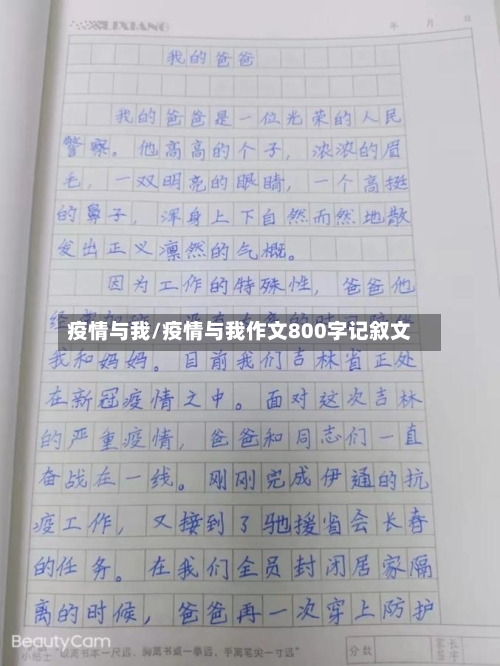 LIXIANG
年 月 日
我的爸爸
我的爸爸是一位光荣的人民
警察。他高高的个子，浓浓的眉
毛，一双明亮的眼睛，一个高挺
的鼻子，浑身上下自然而然地散
发出正义凛然的气概。
因为工作的特殊性，爸爸他
疫情与我/疫情与我作文800字记叙文
我和妈妈。目前我们吉林省正处
在新冠疫情之中。面对这次吉林
的严重疫情，爸爸和同志们一直
奋战在一线。刚刚完成伊通的抗
疫工作，又接到了驰援省会长春
的任务。在我们全员封闭居家隔
离的时候，爸爸再一次穿上防护
BeautyCam
眼离书本一尺远，胸离书桌一拳远，手离笔尖一寸远
分数
家长
签字